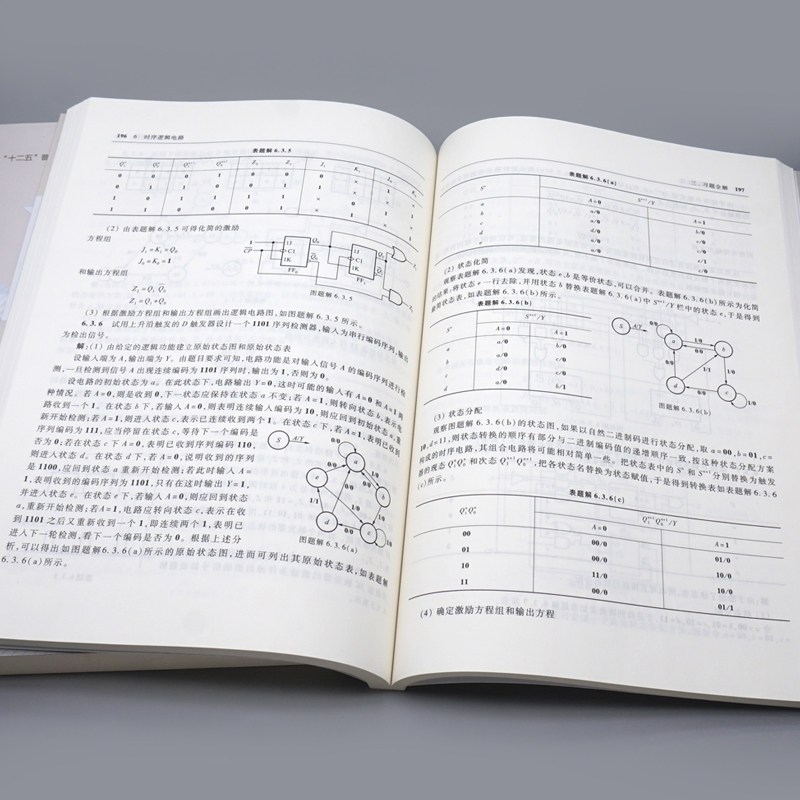 "十二五"普
196 6 时序逻辑电路
表题解 6.3.5
(2) 由表题解 6.3.5 可得化简的激励
方程组
J₁=K₁=Q₀
J₀=K₀=1
和输出方程组
图题解 6.3.5
(3) 根据激励方程组和输出方程组画出逻辑电路图,如图题解 6.3.5 所示。
6.3.6 试用上升沿触发的 D 触发器设计一个 1101 序列检测器,输入为串行编码序列,输出
为检出信号。
解:(1) 由给定的逻辑功能建立原始状态图和原始状态表
设输入端为 A,输出端为 Y。由题目要求可知,电路功能是对输入信号 A 的编码序列进行检
测,一旦检测到信号 A 出现连续编码为 1101 序列时,输出为 1,否则为 0。
设电路的初始状态为 a。在此状态下,电路输出 Y=0,这时可能的输入有 A=0 和 A=1 两
种情况。若 A=0,则是收到 0,下一状态应保持在状态 a 不变;若 A=1,则转向状态 b,表示电
路收到一个 1。在状态 b 下,若输入 A=0,则表明连续输入编码为 10,则应回到初始状态 a,重
新开始检测;若 A=1,则进入状态 c,表示已连续收到两个 1。在状态 c 下,若 A=1,表明已收到
序列编码为 111,应当停留在状态 c,等待下一个编码是
否为 0;若在状态 c 下 A=0,表明已收到序列编码 110,
则进入状态 d。在状态 d 下,若 A=0,说明收到的序列
是 1100,应回到状态 a 重新开始检测;若此时输入 A=
1,表明收到的编码序列为 1101,只有在这时输出 Y=1,
并进入状态 e。在状态 e 下,若输入 A=0,则应回到状态
a,重新开始检测;若 A=1,电路应转向状态 c,表示在收
到 1101 之后又重新收到一个 1,即连续两个 1,表明已
进入下一轮检测,看下一个编码是否为 0。根据上述分
析,可以得出如图题解 6.3.6(a)所示的原始状态图,进而可列出其原始状态表,如表题解
6.3.6(a)所示。
图题解 6.3.6(a)
二、习题全解 197
表题解 6.3.6(a)
Sⁿ Sⁿ⁺¹/Y
A=0 A=1
a a/0 b/0
b a/0 c/0
c d/0 c/0
d a/0 e/1
e a/0 c/0
(2) 状态化简
观察表题解 6.3.6(a)发现,状态 e、b 是等价状态,可以合并。表题解 6.3.6(b)所示为化简
的结果;将状态 e 一行去除,并用状态 b 替换表题解 6.3.6(a)中 Sⁿ⁺¹/Y 栏中的状态 e,于是得到
最简状态表,如表题解 6.3.6(b)所示。
表题解 6.3.6(b)
Sⁿ Sⁿ⁺¹/Y
A=0 A=1
a a/0 b/0
b a/0 c/0
c d/0 c/0
d a/0 b/1
图题解 6.3.6(b)
(3) 状态分配
观察图题解 6.3.6(b)的状态图,如果以自然二进制码进行状态分配,取 a=00,b=01,c=
10,d=11,则状态转换的顺序有部分与二进制编码值的递增顺序一致,按这种状态分配方案
构成的时序电路,其组合电路将可能相对简单一些。把状态表中的 Sⁿ 和 Sⁿ⁺¹ 分别替换为触发
器的现态 Q₁ⁿQ₀ⁿ 和次态 Q₁ⁿ⁺¹Q₀ⁿ⁺¹,把各状态名替换为状态赋值,于是得到转换表如表题解 6.3.6
(c)所示。
表题解 6.3.6(c)
Q₁ⁿQ₀ⁿ Q₁ⁿ⁺¹Q₀ⁿ⁺¹/Y
A=0 A=1
00 00/0 01/0
01 00/0 10/0
10 11/0 10/0
11 00/0 01/1
(4) 确定激励方程组和输出方程